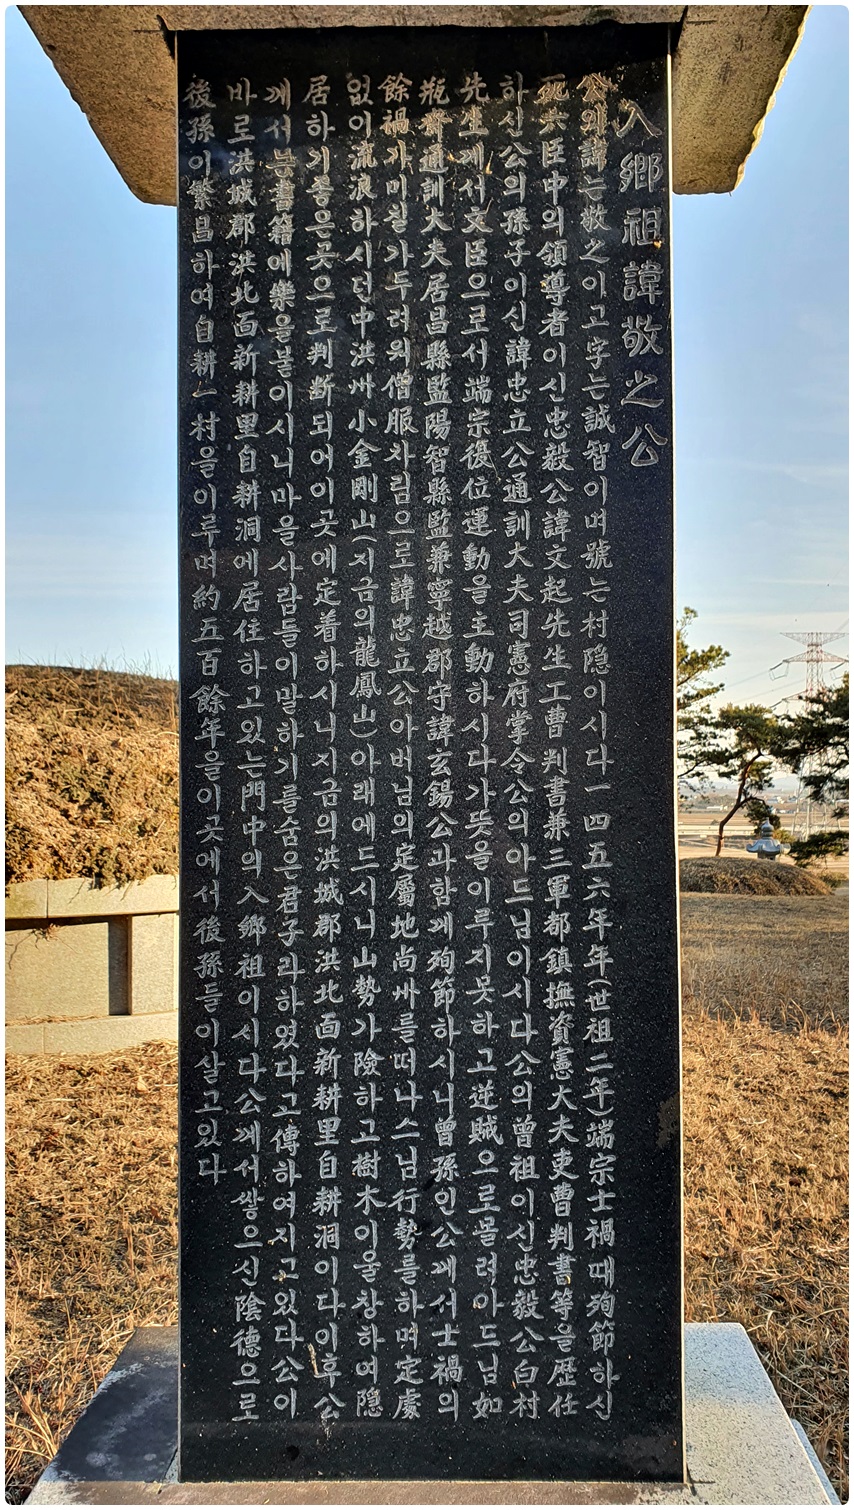 入鄕祖諱敬之公
公의諱는敬之이고字는誠智이며號는村隐이시다一四五六年年(世祖二年)端宗士禍때殉節하신
死六臣中의領導者이신忠毅公諱文起先生工曹判書兼三軍都鎭撫資憲大夫吏曹判書等을歷任
하신公의孫子이신諱忠立公通訓大夫司憲府掌令公의아드님이시다公의曾祖이신忠毅公白村
先生께서文臣으로서端宗復位運動을主動하시다가뜻을이루지못하고逆賊으로몰려아드님如
甁齊通訓大夫居昌縣監陽智縣監兼寧越郡守諱玄錫公과함께殉節하시니曾孫인公께서士禍의
餘禍가미칠가두려워僧服차림으로諱忠立公아버님의定屬地尙州를떠나스님行勢를하며定處
없이流浪하시던中洪州小金剛山(지금의龍鳳山)아래에드시니山勢가險하고樹木이울창하여隱
居하기좋은곳으로判断되어이곳에定着하시니지금의洪城郡洪北面新耕里自耕洞이다이후公
께서는書籍에樂을붙이시니마을사람들이말하기를숨은君子라하였다고傳하여지고있다公이
바로洪城郡洪北面新耕里自耕洞에居住하고있는門中의入鄕祖이시다公께서쌓으신陰德으로
後孫이繁昌하여自耕一村을이루며約五百餘年을이곳에서後孫들이살고있다